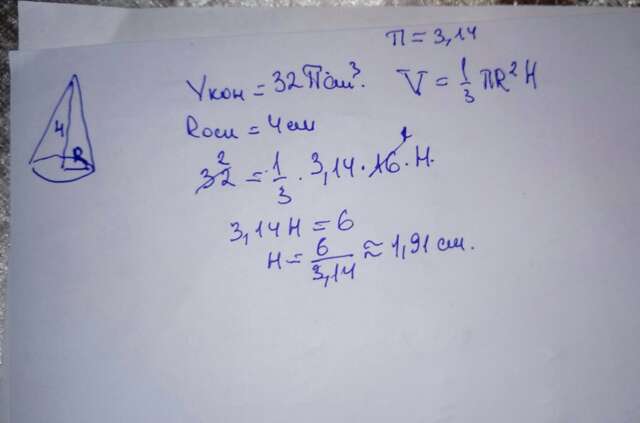 П = 3,14
Vкон = 32 П см³. V = 1/3 πR²H
Rосн = 4 см
4
R
32 2 = 1/3 · 3,14 · 16 1 · H.
3,14 H = 6
H = 6/3,14 ≈ 1,91 см.